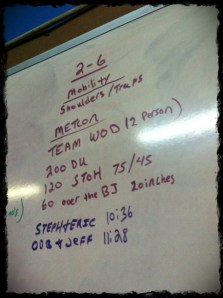 2-6
Mobility
Shoulders/Traps
METCON
TEAM WOD (2 Person)
200 DU
120 STOH 75/45
60 over the BJ 20inches
STEPH+ERIC 10:36
+JEFF 11:28